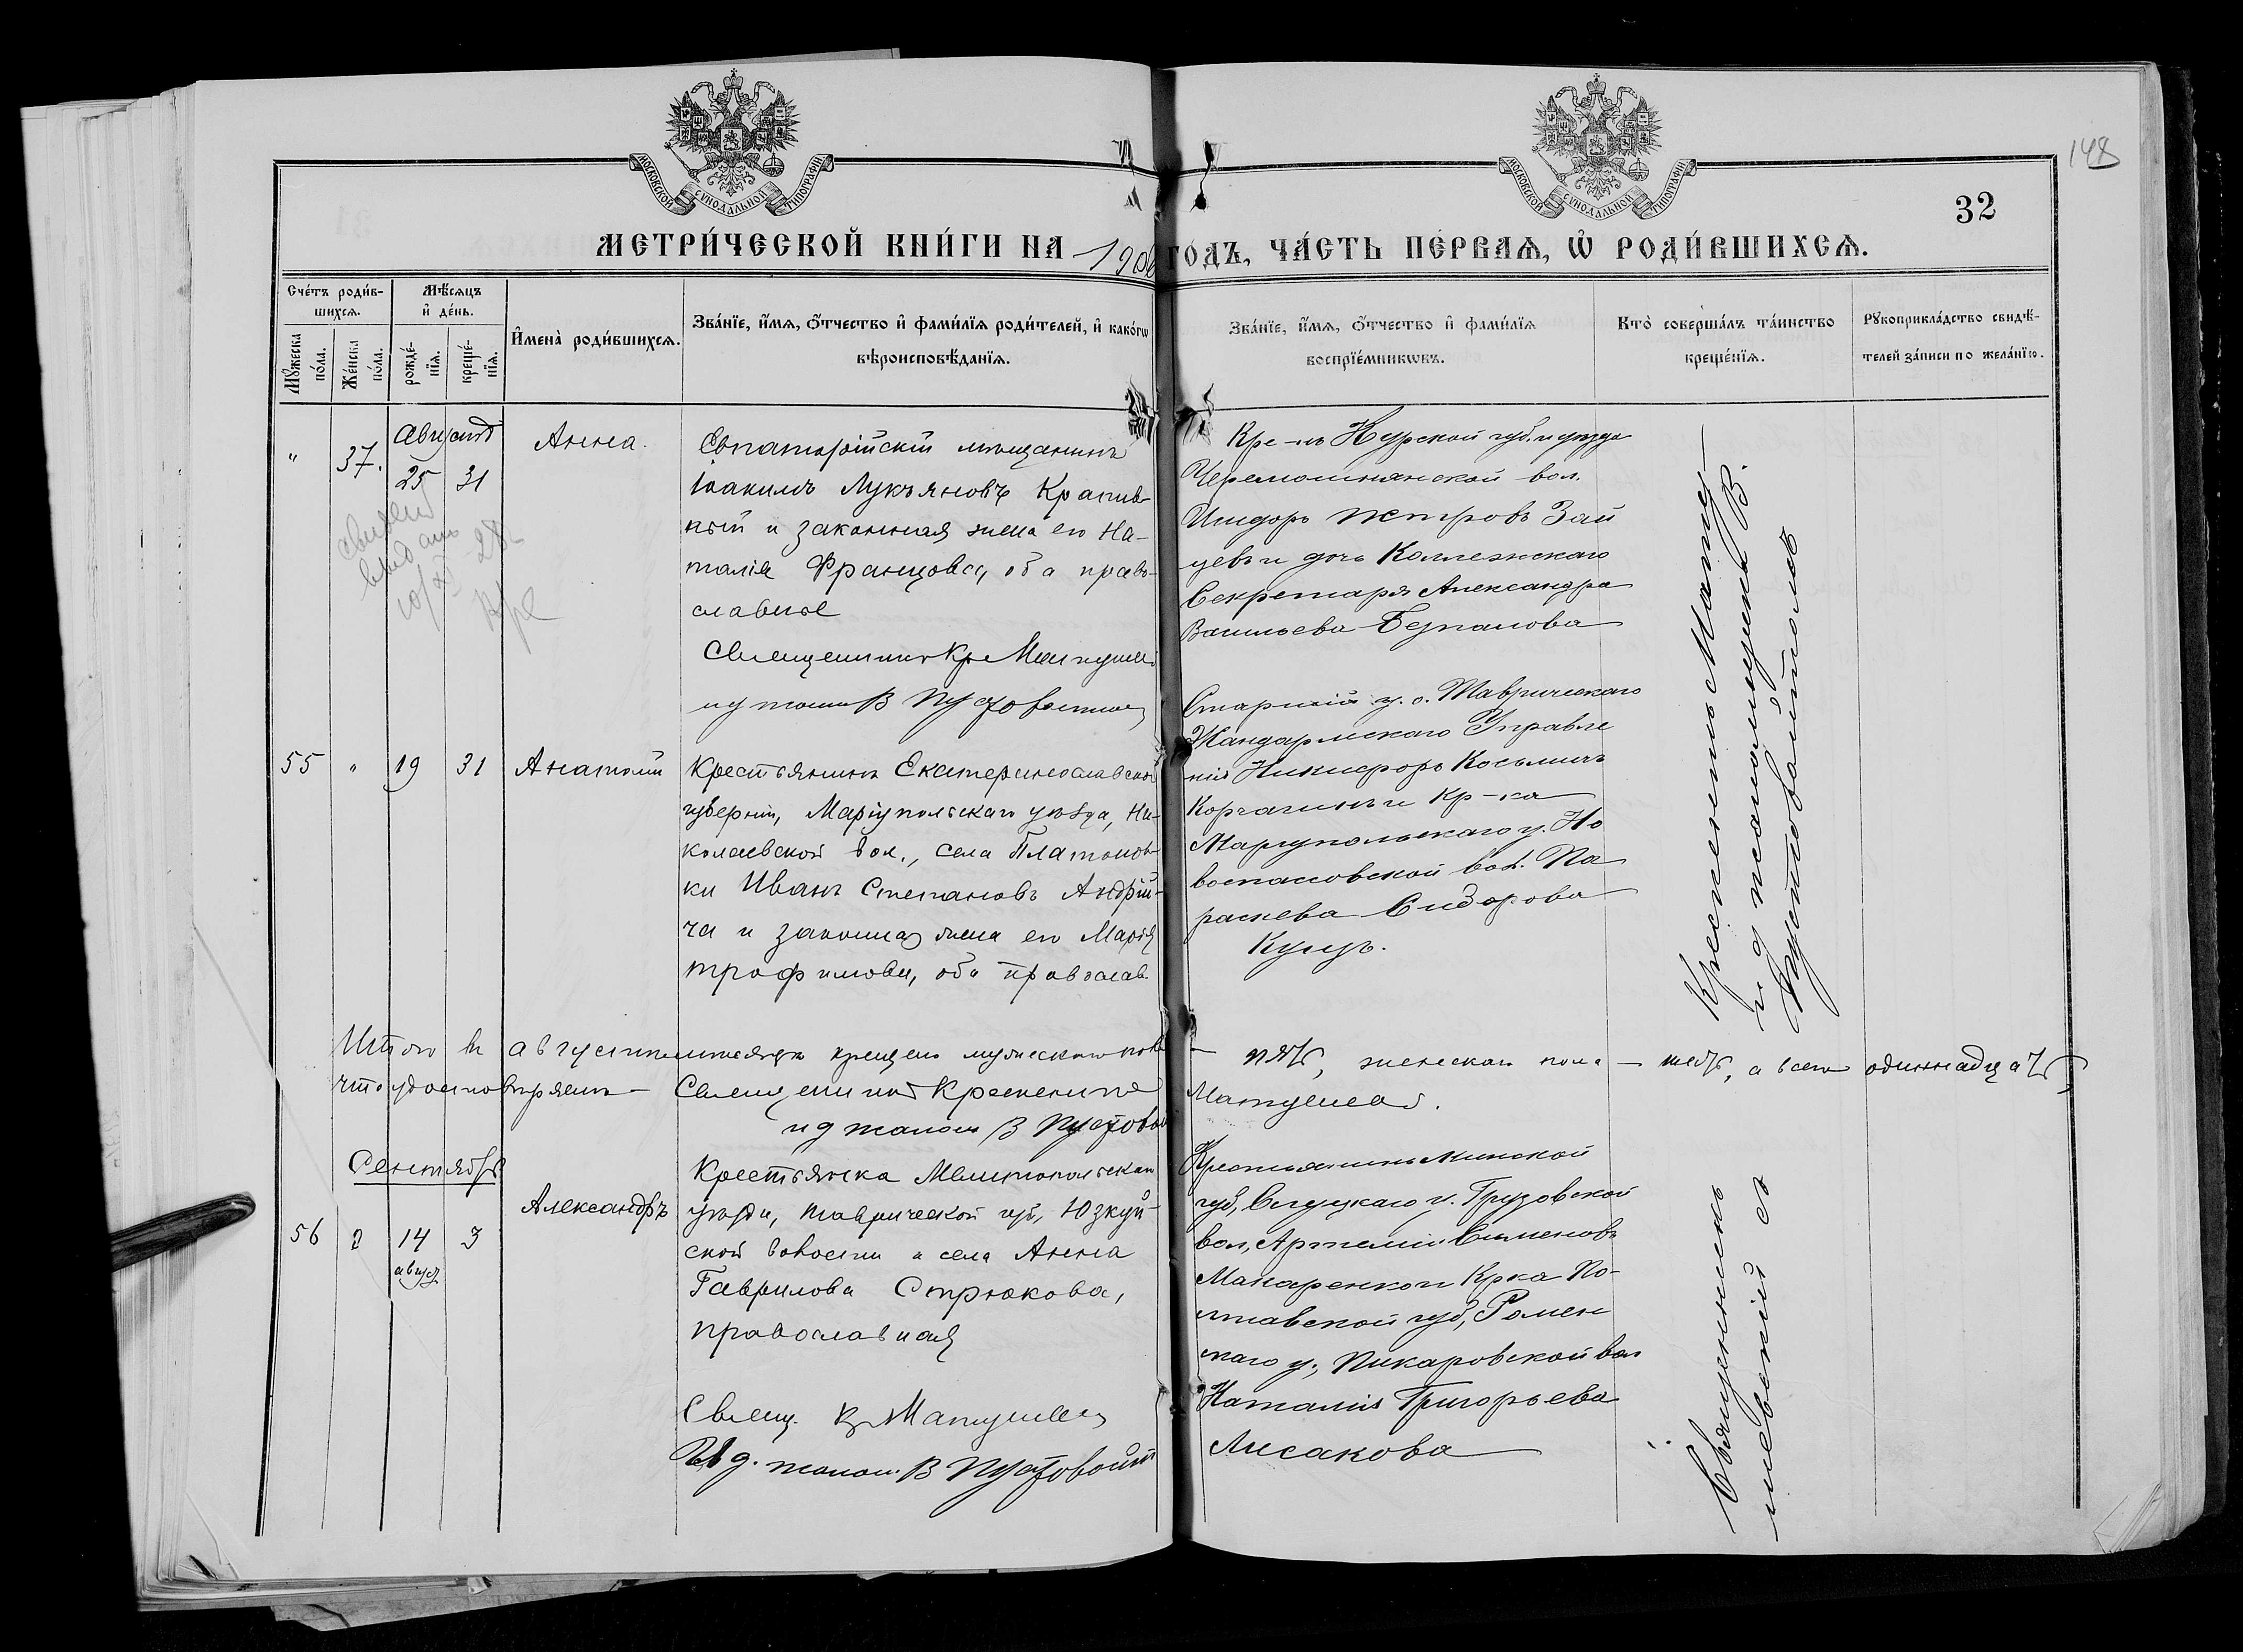 148
32
МОСКОВСКОЙ СѴНОДАЛЬНОЙ ТИПОГРАФІИ
МОСКОВСКОЙ СѴНОДАЛЬНОЙ ТИПОГРАФІИ
МЕТРИ́ЧЕСКОЙ КНИ́ГИ НА 1906 ГОДЪ, ЧА́СТЬ ПЕ́РВАѦ, Ѡ҆ РОДИ́ВШИХСѦ.
Сче́тъ роди́в-
шихсѧ.
Мꙋ́жеска по́ла.
Же́нска по́ла.
Мѣ́сѧцъ
и҆ де́нь.
рожде́-
нїѧ.
креще́-
нїѧ.
И҆мена̀ роди́вшихсѧ.
Зва́нїе, и҆́мѧ, ѻ҆́тчество и҆ фами́лїѧ роди́телей, и҆ како́гѡ
вѣроисповѣ́данїѧ.
Зва́нїе, и҆́мѧ, ѻ҆́тчество и҆ фами́лїѧ
воспрїе́мникѡвъ.
Кто̀ соверша́лъ та́инство
креще́нїѧ.
Рꙋкоприкла́дство свидѣ́-
телей за́писи по жела́нїю.
" 37. Августъ 25 31 Анна.
Евпаторійскій мѣщанинъ
Іоакимъ Лукьяновъ Крапив-
ный и законная жена его На-
талія Францовна, оба право-
славные
Священникъ Кр Матушев
и д псалом В Пустовойтов
Кре-нъ Курской губ. и уѣзда
Черемошнянской вол.
Исидоръ Петровъ Зай
цевъ и дочь Коллежскаго
Секретаря Александра
Васильева
Крескентъ Матуш
и д псаломщика В.
Пустовойтовъ
55 " 19 31 Анатолій
Крестьянинъ Екатеринославской
губерніи, Маріупольскаго уѣзда, Ни-
колаевской вол., села Платонов-
ки Иванъ Степановъ Андрій-
ча и законная жена его Марія
Трофимова, оба православ.
Старшій у. о. Таврическаго
Жандармскаго Управле
нія Никифоръ Косьминъ
Корчагинъ и Кр-ка
Маріупольскаго у. Но
воспасовской вол. Па
раскева Сидорова
Куцъ.
Итого въ августѣ мѣсяцѣ крещено мужескаго пола — пять, женскаго пола — шесть, а всего одиннадцать
что удостовѣряемъ — Священникъ Крескентъ Матушевъ.
и д псалом В Пустовой
Сентябрь
56 " 14 3 Александръ
август
Крестьянка Мелитопольскаго
уѣзда, Таврической губ, Юзкуй-
ской волости и села Анна
Гаврилова Стрюкова,
православная
Свящ. К Матушев
И д. псалом. В Пустовойт
Крестьянинъ Минской
губ, Слуцкаго у. Грузовской
вол, Артемій Сименовъ
Макаренко и Крка По-
лтавской губ, Ромен
скаго у., Пикаровской вол
Наталія Григорьева
Лисакова
Священникъ